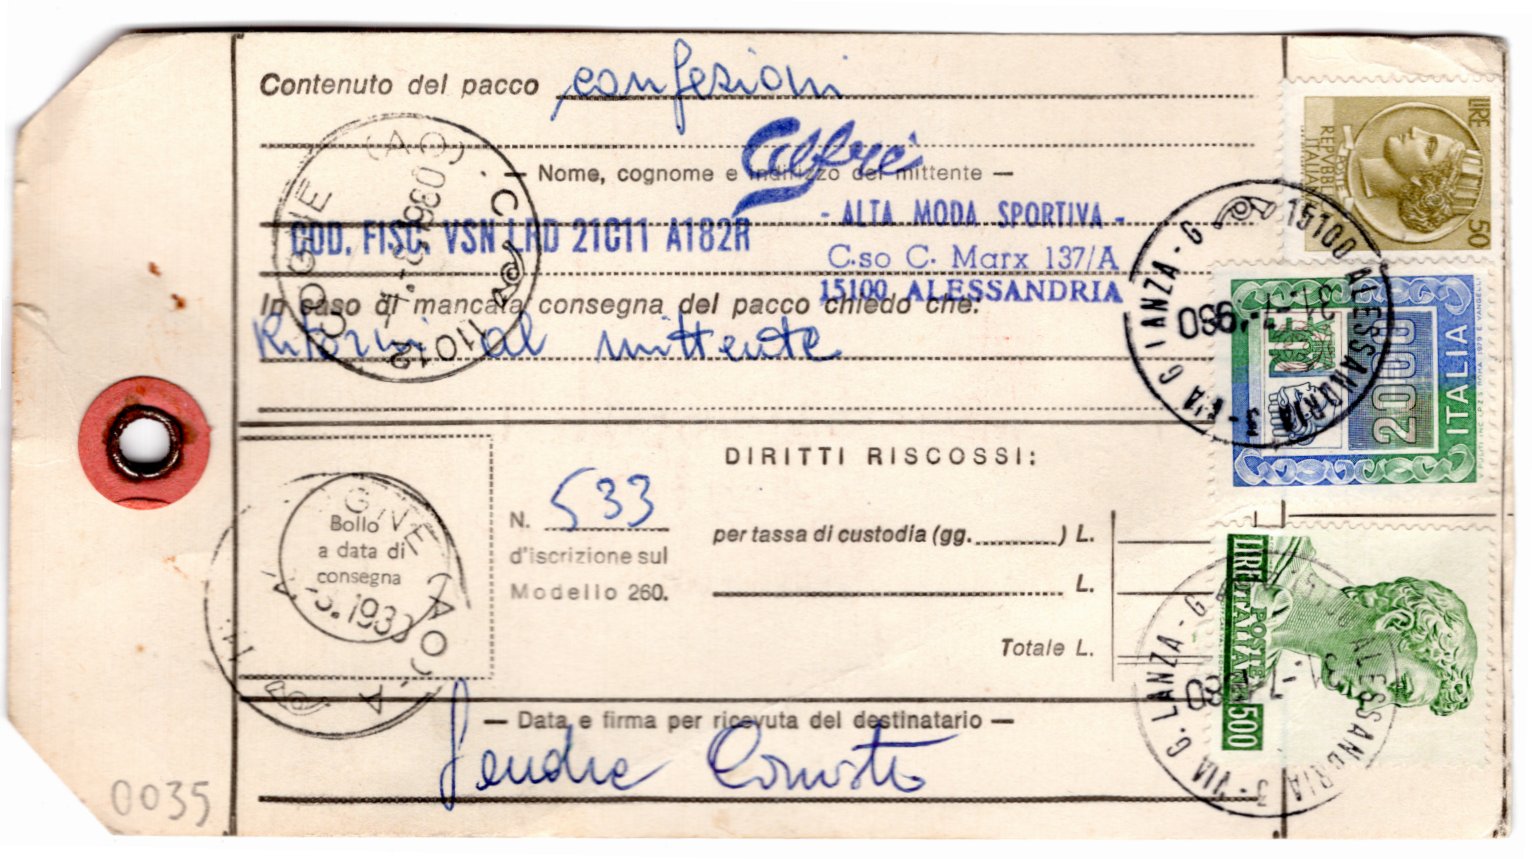 Contenuto del pacco confezioni
— Nome, cognome e indirizzo del mittente —
COD. FISC. VSN LRD 21C11 A182R
- ALTA MODA SPORTIVA -
C.so C. Marx 137/A
15100 ALESSANDRIA
In caso di mancata consegna del pacco chiedo che:
Ritorni al mittente
COGNE (AO)
11012
Bollo
a data di
consegna
N. 533
d'iscrizione sul
Modello 260.
DIRITTI RISCOSSI:
per tassa di custodia (gg. ) L.
L.
Totale L.
— Data e firma per ricevuta del destinatario —
0035
LIRE 50
POSTE
REPVBBLICA
ITALIANA
15100 ALESSANDRIA 3 - VIA G. LANZA - G
ITALIA
2000
LIRE 500
POSTE
ITALIANE
15100 ALESSANDRIA 3 - VIA G. LANZA - G